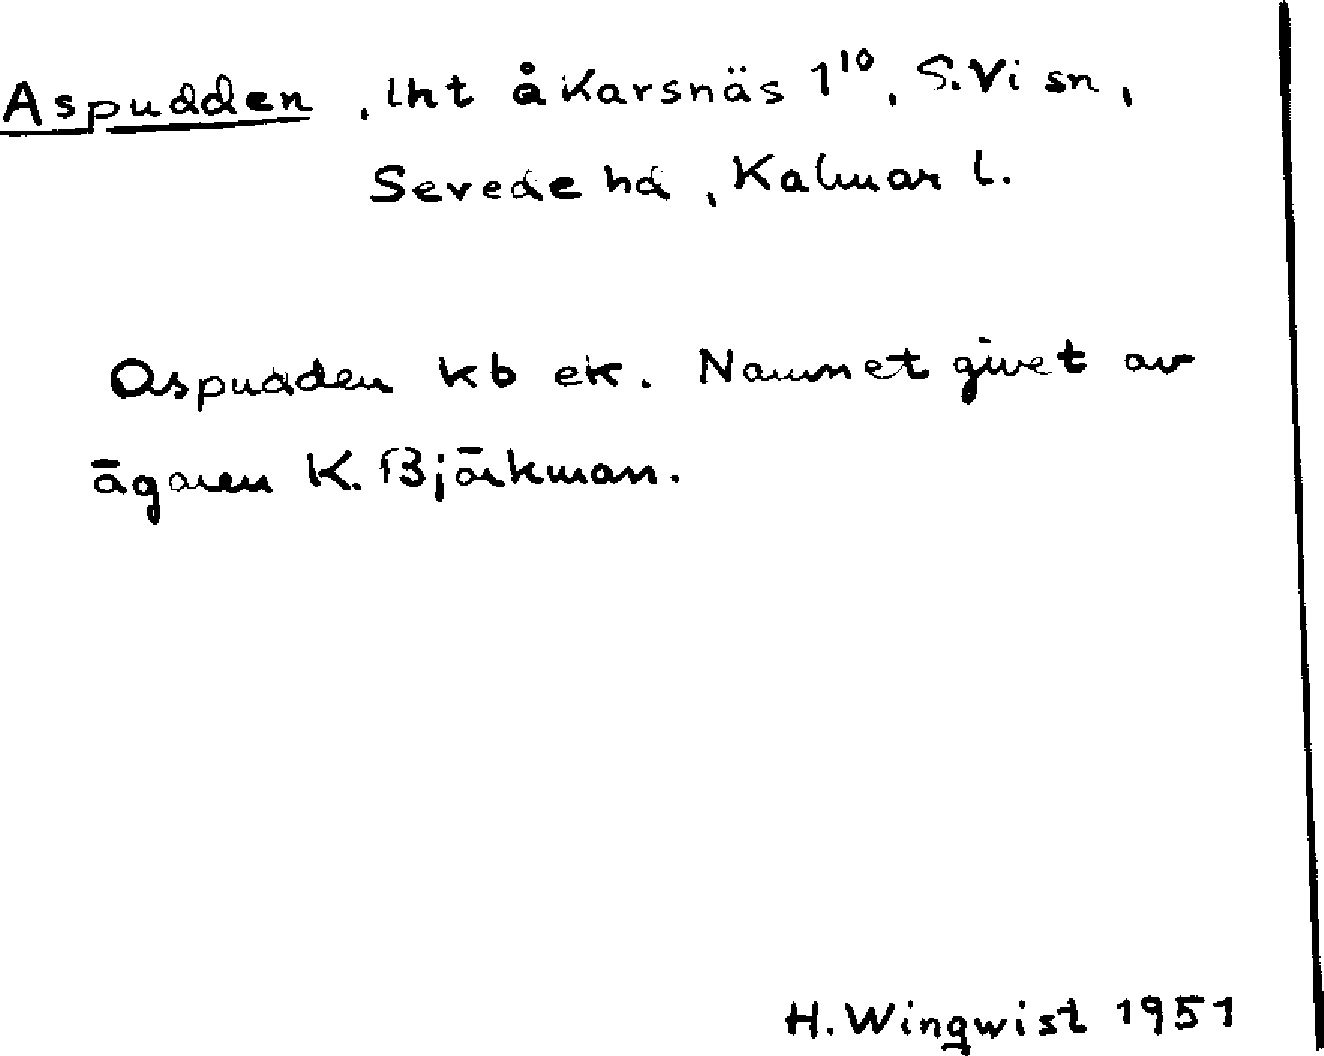 Aspudden, lht å Karsnäs 1¹⁰, S.Vi sn,
Sevede hd, Kalmar l.
Aspudden kb ek. Namnet givet av
ägaren K. Björkman.
H. Wingwist 1951